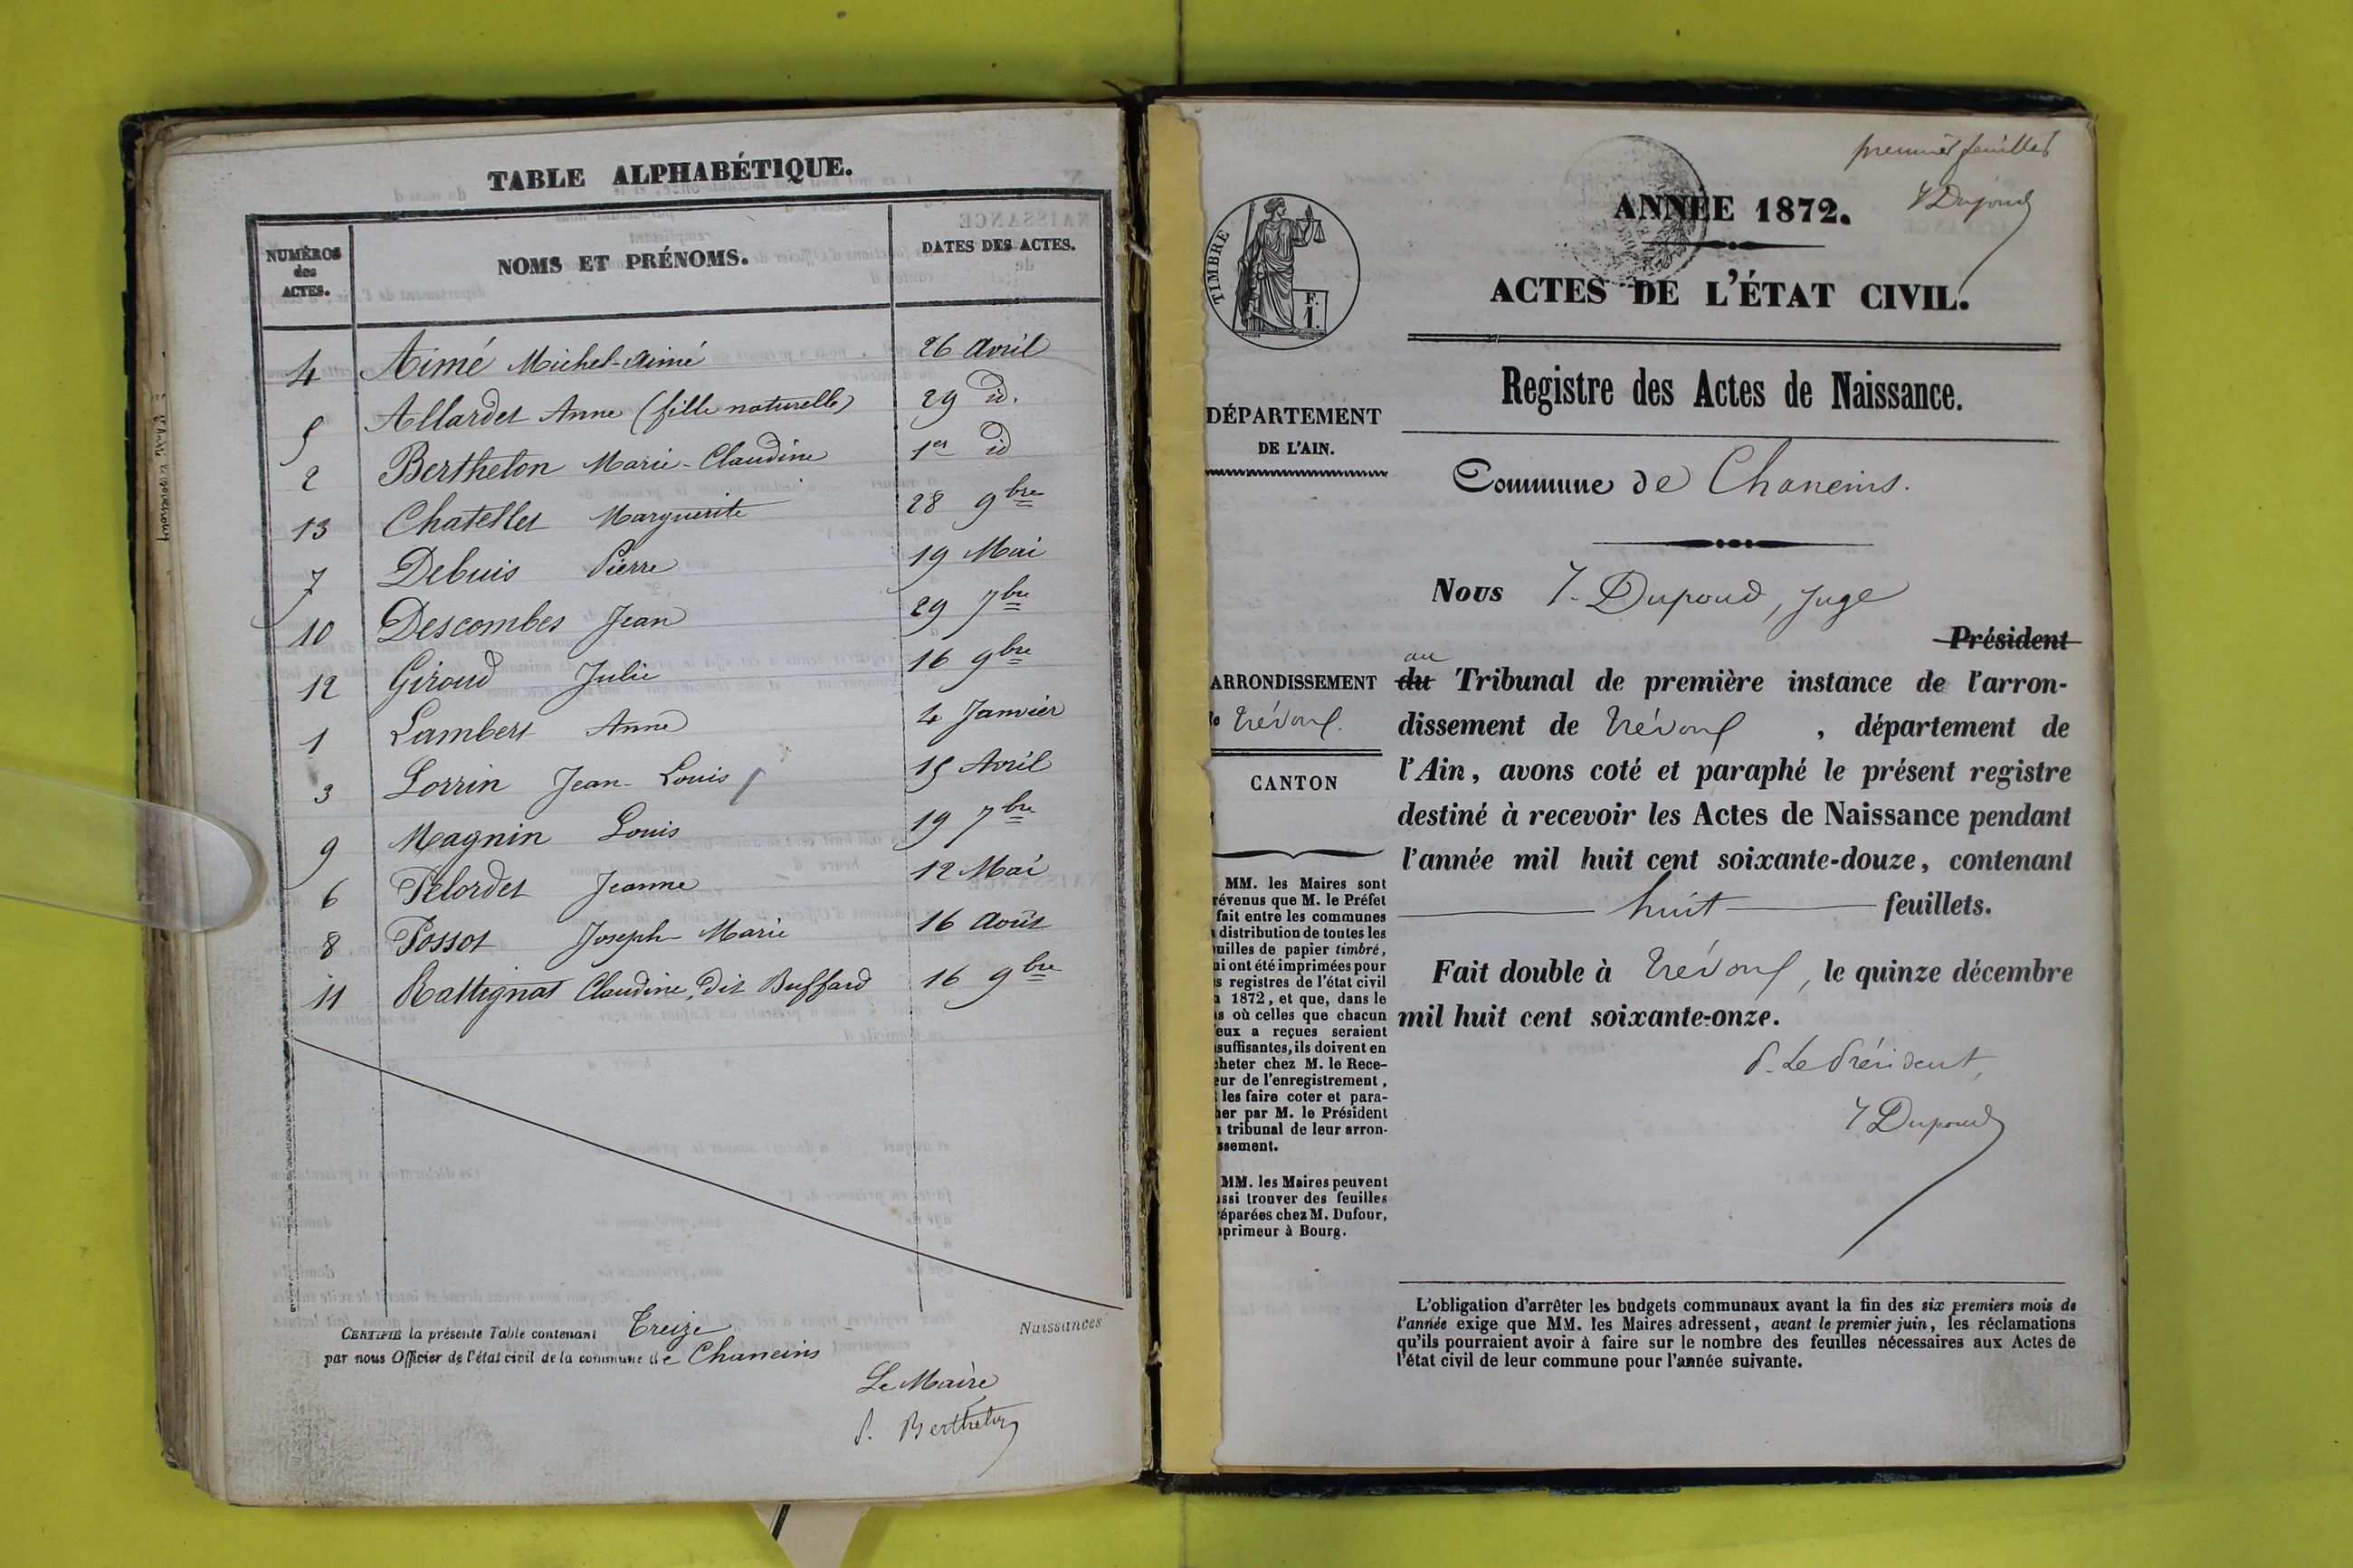 TABLE ALPHABÉTIQUE.
NUMÉROS des ACTES.
NOMS ET PRÉNOMS.
DATES DES ACTES.
4 Aimé Michel-Aimé 26 Avril
5 Allardet Anne (fille naturelle) 29 id.
2 Berthelon Marie-Claudine 1er id
13 Chatellet Marguerite 28 9bre
7 Debuis Pierre 19 Mai
10 Descombes Jean 29 7bre
12 Giroud Julie 16 9bre
1 Lambert Anne 4 Janvier
3 Lorrin Jean-Louis 15 Avril
9 Magnin Louis 19 7bre
6 Pelordet Jeanne 12 Mai
8 Possot Joseph-Marie 16 Août
11 Rattignat Claudine, dit Buffard 16 9bre
CERTIFIÉ la présente Table contenant Treize Naissances
par nous Officier de l'état civil de la commune de Chaneins
Le Maire
P. Berthelon
premier feuillet
Y Dupoud
ANNÉE 1872.
ACTES DE L'ÉTAT CIVIL.
Registre des Actes de Naissance.
Commune de Chaneins.
Nous Y. Dupoud, juge
Président
au
du Tribunal de première instance de l'arron-
dissement de Trévoux, département de
l'Ain, avons coté et paraphé le présent registre
destiné à recevoir les Actes de Naissance pendant
l'année mil huit cent soixante-douze, contenant
huit feuillets.
Fait double à Trévoux, le quinze décembre
mil huit cent soixante-onze.
P. Le Président,
Y Dupoud
L'obligation d'arrêter les budgets communaux avant la fin des six premiers mois de
l'année exige que MM. les Maires adressent, avant le premier juin, les réclamations
qu'ils pourraient avoir à faire sur le nombre des feuilles nécessaires aux Actes de
l'état civil de leur commune pour l'année suivante.
TIMBRE
F.
1.
DÉPARTEMENT
DE L'AIN.
ARRONDISSEMENT
de Trévoux.
CANTON
MM. les Maires sont
révenus que M. le Préfet
fait entre les communes
distribution de toutes les
uilles de papier timbré,
ui ont été imprimées pour
s registres de l'état civil
1872, et que, dans le
s où celles que chacun
eux a reçues seraient
suffisantes, ils doivent en
heter chez M. le Rece-
eur de l'enregistrement,
les faire coter et para-
her par M. le Président
tribunal de leur arron-
ssement.
MM. les Maires peuvent
ssi trouver des feuilles
éparées chez M. Dufour,
primeur à Bourg.